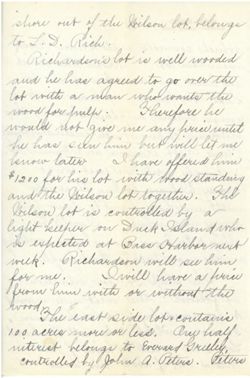 shore out of the Wilson lot, belongs
to L. D. Rich.
Richardson's lot is well wooded
and he has agreed to go over the
lot with a man who wants the
wood for pulp. Therefore he
would not give me any price until
he has seen him but will let me
know later. I have offered him
$1200 for his lot with wood standing
and the Wilson lot together. The
Wilson lot is controlled by a
light keeper on Duck Island who
is expected at Bass Harbor next
week. Richardson will see him
for me. I will have a price
from him with or without the
wood.
The east side lot contains
100 acres more or less. One half
interest belongs to Everard Greeley,
controlled by John A. Peters. Peters